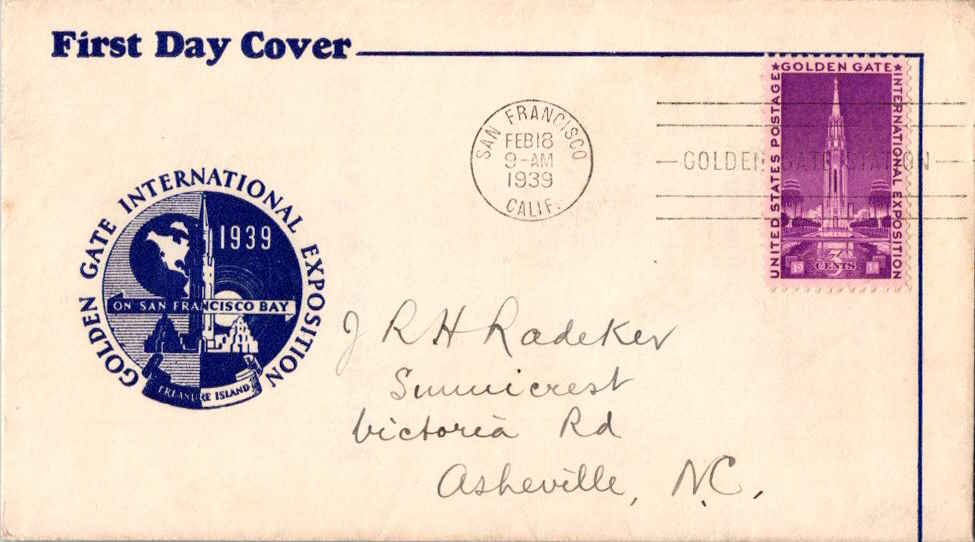 First Day Cover
SAN FRANCISCO
FEB 18
9-AM
1939
CALIF.
GOLDEN GATE STATION
★GOLDEN GATE★
UNITED STATES POSTAGE
INTERNATIONAL EXPOSITION
3
CENTS
19 39
GOLDEN GATE INTERNATIONAL EXPOSITION
1939
ON SAN FRANCISCO BAY
TREASURE ISLAND
J R H Radeker
Sunnicrest
Victoria Rd
Asheville, N.C.